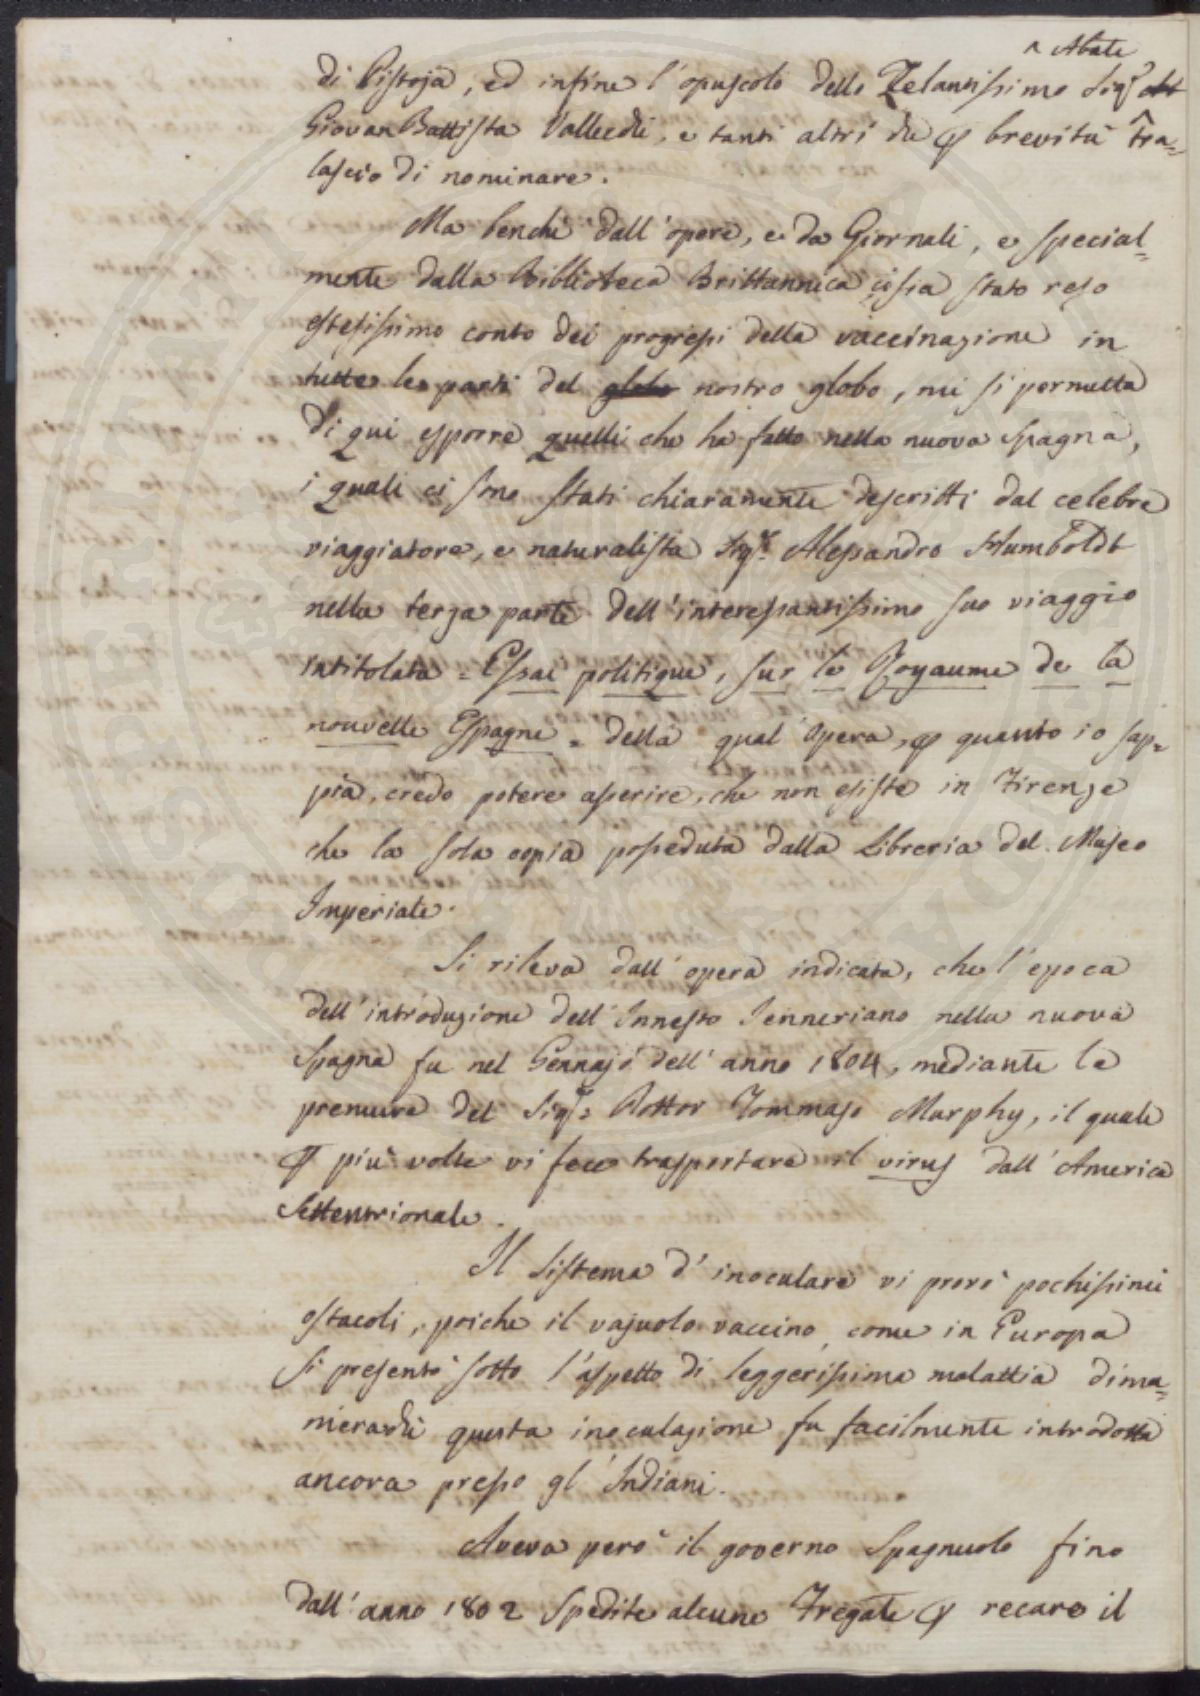 ^ Abate
di Pistoja, ed infine l'opuscolo dello Zelantissimo Sigr
Giovan Battista Vallecchi, e tanti altri che p brevità tra=
lascio di nominare.
Ma benchè dall'opere, e da Giornali, e special=
mente dalla Biblioteca Brittannica ci sia stato reso
estesissimo conto dei progressi della vaccinazione in
tutte le parti del globo nostro globo, mi si permetta
di qui esporre quelli che ha fatto nella nuova Spagna,
i quali ci sono stati chiaramente descritti dal celebre
viaggiatore, e naturalista Sigr. Alessandro Humboldt
nella terza parte dell'interessantissimo suo viaggio
intitolata = Essai politique, sur le Royaume de la
nouvelle Espagne = della qual'opera, p quanto io sap=
pia, credo potere asserire, che non esiste in Firenze
che la sola copia posseduta dalla Libreria del Museo
Imperiale.
Si rileva dall'opera indicata, che l'epoca
dell'introduzione dell'Innesto Jenneriano nella nuova
Spagna fu nel Gennajo dell'anno 1804, mediante le
premure del Sigr. Dottor Tommaso Murphy, il quale
p più volte vi fece trasportare il virus dall'America
Settentrionale.
Il Sistema d'inoculare vi provò pochissimi
ostacoli, poiche il vajuolo vaccino, come in Europa
si presentò sotto l'aspetto di leggerissima malattia dima=
nierachè questa inoculazione fu facilmente introdotta
ancora presso gl'Indiani.
Aveva però il governo Spagnuolo fino
dall'anno 1802 Spedite alcune Fregate p recare il